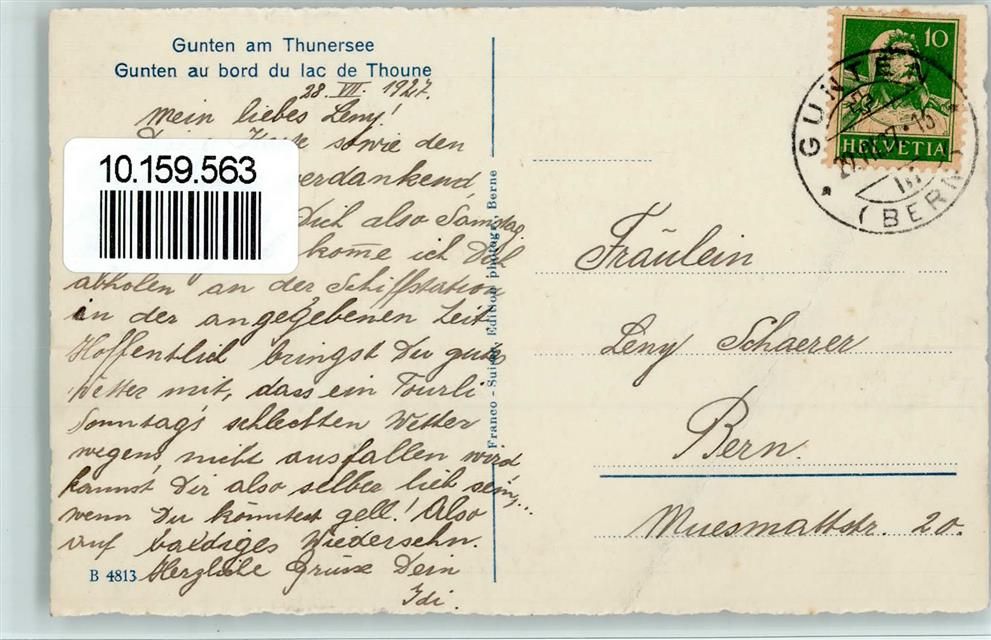 Gunten am Thunersee
Gunten au bord du lac de Thoune
28. VII. 1927.
Mein liebes Leny!
sowie den
verdankend
Dich also Samstag
kom̄e ich Dich
abholen an der Schiffstation
in der angegebenen Zeit
Hoffentlich bringst Du gutes
Wetter mit, dass ein Tourli
Sonntag's schlechten Wetter
wegens, nicht ausfallen wird
kannst Dir also selber lieb sein,..
wenn Du könntest gell! Also
auf baldiges Wiedersehn.
Herzliche Grüsse Dein
Idi.
B 4813
10.159.563
Franco-Suisse, Edition photogr., Berne
10
HELVETIA
GUNTEN
(BERN)
Fräulein
Leny Schaerer
Bern.
Muesmattstr. 20.